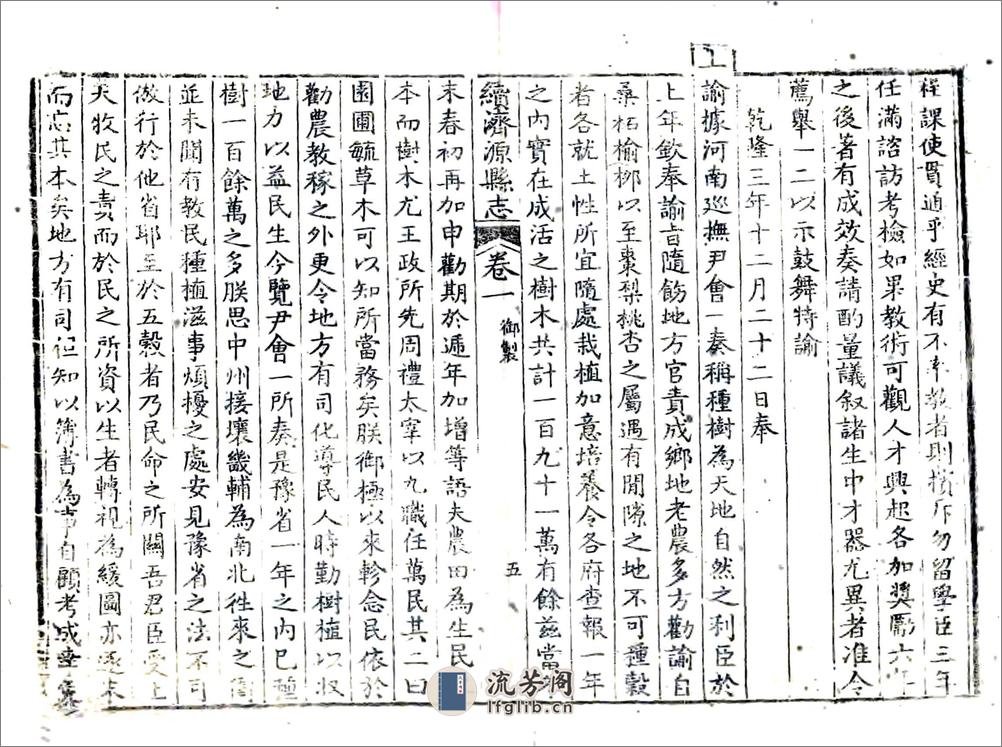 程課使貫通乎經史有不率教者則擯斥勿留學臣三年
任滿諮訪考檢如果教術可觀人才興起各加獎勵六年
之後著有成效奏請酌量議敘諸生中才器尤異者准令
薦舉一二以示鼓舞特諭
乾隆三年十二月二十二日奉
上
諭據河南巡撫尹會一奏稱種樹為天地自然之利臣於
上年欽奉諭旨隨飭地方官責成鄉地老農多方勸諭自
桑柘榆栁以至棗梨桃杏之屬遇有閒隙之地不可種穀
者各就土性所宜隨處栽植加意培養令各府查報一年
之內實在成活之樹木共計一百九十一萬有餘茲當
續濟源縣志 卷一 御製 五
末春初再加申勸期於遞年加增等語夫農田為生民
本而樹木尤王政所先周禮太宰以九職任萬民其二曰
園圃毓草木可以知所當務矣朕御極以來軫念民依於
勸農教稼之外更令地方有司化導民人時勤樹植以收
地力以益民生今覽尹會一所奏是豫省一年之內已種
樹一百餘萬之多朕思中州接壤畿輔為南北徃來之
並未聞有教民種植滋事煩擾之處安見豫省之法不可
倣行於他省耶至於五穀者乃民命之所關吾君臣受上
天牧民之責而於民之所資以生者轉視為緩圖亦逐末
而忘其本矣地方有司但知以簿書為事自顧考成
流芳阁
lfglib.cn